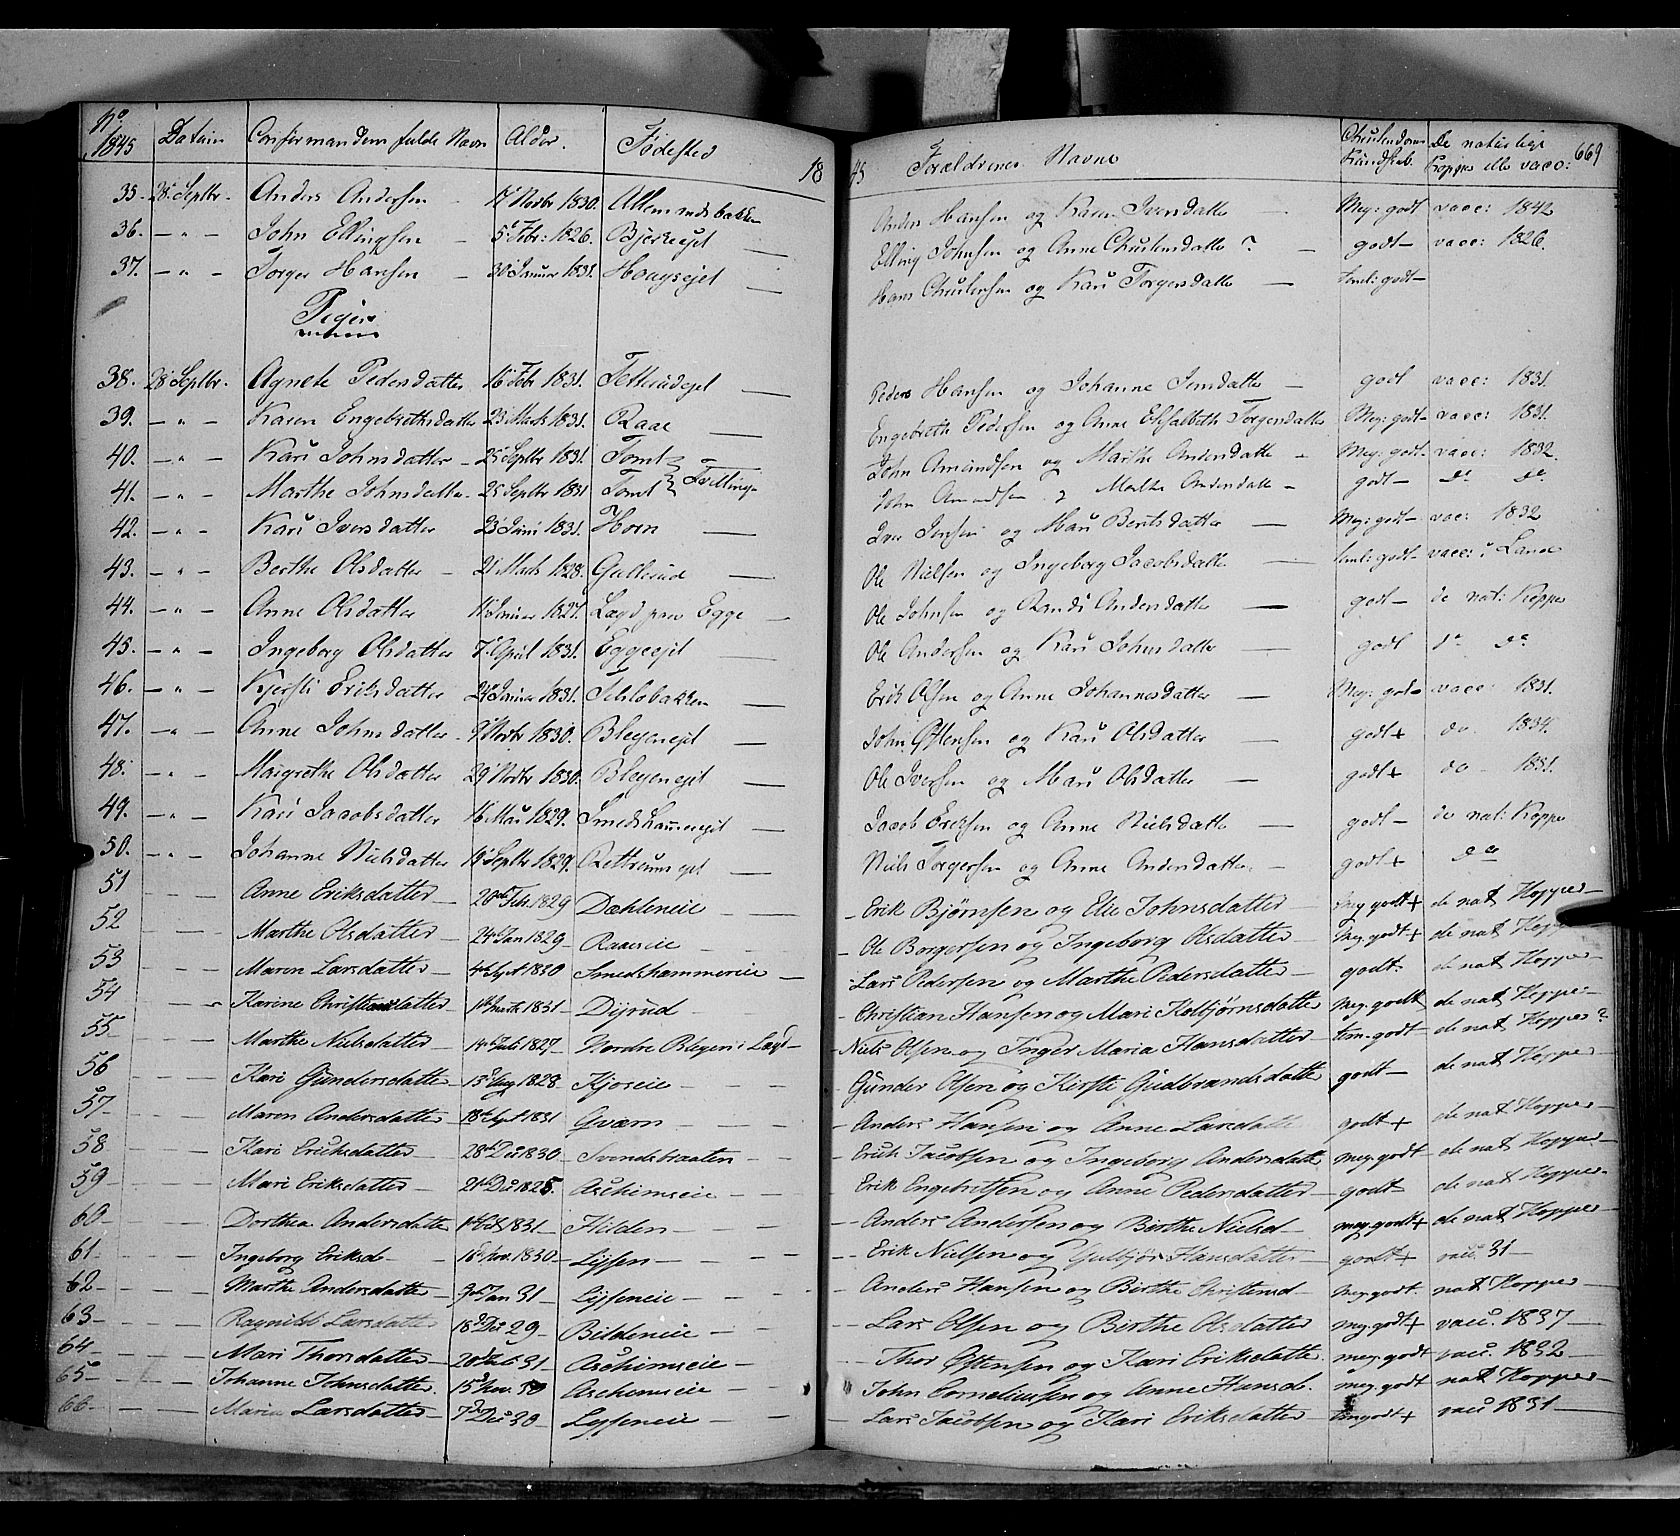 No 1845 Datum Confirmandens fulde Navn Alder. Födested 18 45 Forældrenes Navne Christendoms Kundskab. De naturlige Kopper eller vacc: 669
35. 28 Septbr. Anders Andersen 17 Novbr 1830. Allemundsbakken Anders Hansen og Karen Iversdatter Meg: godt vacc: 1842
36. John Ellingsen 5 Febr: 1826. Bjerkeejet Elling Johnsen og Anne Christensdatter ? godt vacc: 1826.
37. Torger Hansen 30 Januar 1831. Hougsejet Hans Christensen og Kari Torgersdatter teml: godt
Piger
38. 28 Septbr. Agnete Pedersdatter 16 Febr 1831. Tetterudejet Peder Hansen og Johanne Jensdatter godt vacc: 1831.
39. Karen Engebrethsdatter 23 Marts 1831. Raae Engebreth Pedersen og Anne Elisabeth Torgersdatter Meg: godt vacc: 1831.
40. Kari Johnsdatter 25 Septbr 1831. Tomt John Amundsen og Marthe Andersdatter Meg: godt vacc: 1832.
41. Marthe Johnsdatter 25 Septbr 1831 Tomt Tvillinge John Amundsen og Marthe Andersdatter godt do do
42. Kari Iversdatter 23 Juni 1831. Horn Iver Jensen og Mari Berntsdatter Meg: godt vac: 1832
43. Berthe Olsdatter 21 Marts 1828. Gullerud Ole Nielsen og Ingeborg Jacobsdatter teml: godt vacc: i Land
44. Anne Olsdatter 11 Januar 1827. Lægd paa Egge Ole Johnsen og Randi Andersdatter godt de nat: Kopper
45. Ingeborg Olsdatter 7 April 1831. Eggeejet Ole Andersen og Kari Johnsdatter godt do do
46. Kjersti Eriksdatter 24 Januar 1831. Teslobakken Erik Olsen og Anne Johannesdatter Meg: godt vacc: 1831.
47. Anne Johnsdatter 9 Novbr 1830. Blegenejet John Ostensen og Kari Olsdatter godt + do 1834.
48. Margrethe Olsdatter 29 Novbr 1830. Blegenejet Ole Iversen og Mari Olsdatter godt + do 1831.
49. Kari Jacobsdatter 16 Mai 1829. Smedshammerejet Jacob Ericksen og Anne Nielsdatter godt de nat: Kopper
50. Johanne Nielsdatter 15 Septbr 1829. Rettrumsejet Niels Torgersen og Anne Andersdatter godt + do
51 Anne Eriksdatter 20 Feb. 1829 Dæhleneie Erik Bjørnsen og Elie Johnsdatter meg godt + de nat Kopper
52 Marthe Olsdatter 24 Jan 1829 Raaeseie Ole Borgersen og Ingeborg Olsdatter Meg. godt + de nat Kopper
53 Maren Larsdatter 4 Sept 1830 Smedshammereie Lars Pedersen og Marthe Pedersdatter godt de nat Kopper
54 Karine Christiansdatter 1 Marts 1831 Dijrud Christian Hansen og Mari Kolbjørnsdatter Meg. godt de nat Kopper
55 Marthe Nielsdatter 14 Juli 1827 Nordre Blegen i Lægd Niels Olsen og Inger Maria Hansdatter tem. godt de nat Kopper ?
56 Kari Gundersdatter 15 Aug 1828. Kjoseie Gunder Olsen og Kirsti Gudbrandsdatter godt de nat Kopper
57 Maren Andersdatter 18 Sept 1831 Gværn Anders Hansen og Anne Larsdatter godt + de nat Kopper
58 Kari Eriksdatter 28 Dec 1830 Svendsbraaten Erik Jacobsen og Ingeborg Andersdatt meg. godt de nat Kopper
59 Mari Eriksdatter 21 Dec 1825. Aschimseie Erik Engebritsen og Anne Pedersdatter godt de nat Kopper
60 Dorthea Andersdatter 1831 Hilden Anders Andersen og Berthe Nielsd meg. godt + de nat Kopper
61. Ingeborg Eriksd. 16 Nov. 1830 Lyssen Erik Nielsen og Gulbjør Hansdatter godt + vacc. 31
62 Marthe Andersdatter Jan 31 Lysseneie Anders Hansen og Birthe Christensd Meg. godt nat Kopper
63 Ragnild Larsdatter 18 Dec 29 Bildeneie Lars Olsen og Birthe Olsdatter meg. godt + vacc. 1837
64 Mari Thorsdatter 20 Feb 31 Aschimseie Thor Østensen og Kari Eriksdatter meg. godt vacc. 1832
65 Johanne Johnsdatter. 15 Nov. 30 Aschimseie John Corneliussen og Anne Hansd. meg. godt nat Kopper
66 Maria Larsdatter 7 Dec 30 Lysseneie Lars Jacobsen og Kari Eriksdatter tem godt + vacc 1831